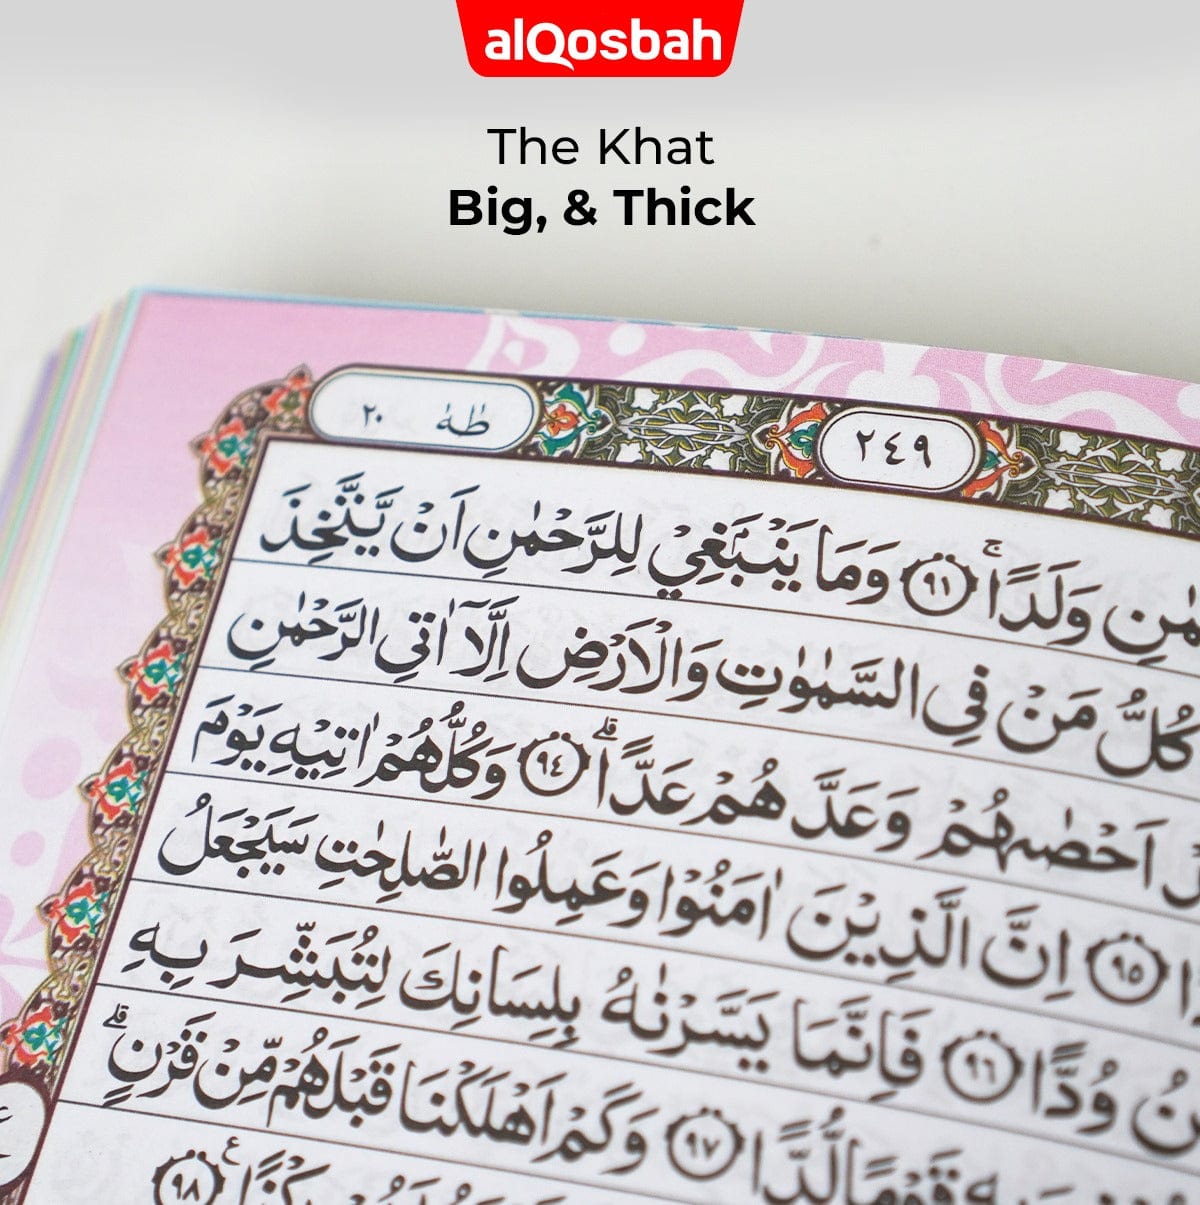 alQosbah
The Khat
Big, & Thick
٢٤٩
طٰهٰ ٢٠
وَلَدًاۚ ٩١ وَمَا يَنْۢبَغِيْ لِلرَّحْمٰنِ اَنْ يَّتَّخِذَ
كُلُّ مَنْ فِى السَّمٰوٰتِ وَالْاَرْضِ اِلَّآ اٰتِى الرَّحْمٰنِ
اَحْصٰىهُمْ وَعَدَّهُمْ عَدًّاۗ ٩٤ وَكُلُّهُمْ اٰتِيْهِ يَوْمَ
٩٥ اِنَّ الَّذِيْنَ اٰمَنُوْا وَعَمِلُوا الصّٰلِحٰتِ سَيَجْعَلُ
وُدًّا ٩٦ فَاِنَّمَا يَسَّرْنٰهُ بِلِسَانِكَ لِتُبَشِّرَ بِهِ
قَوْمًا لُّدًّا ٩٧ وَكَمْ اَهْلَكْنَا قَبْلَهُمْ مِّنْ قَرْنٍۗ
٩٨